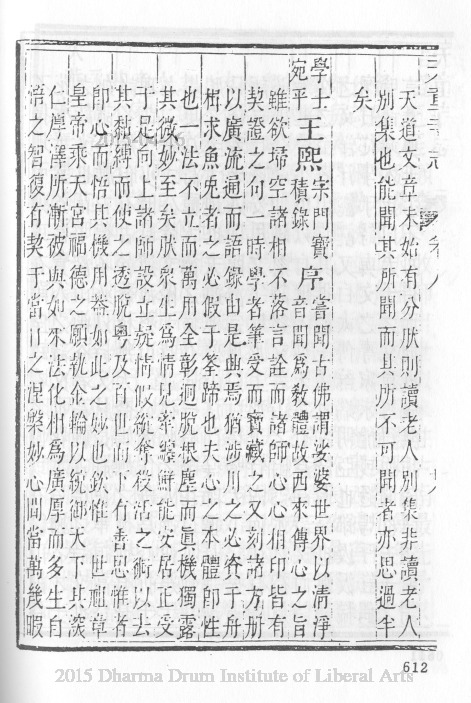 天童寺志 卷八
天道文章未始有分肰則讀老人別集非讀老人
別集也能聞其所聞而其所不可聞者亦思過半
矣
學士宛平王熙宗門寶積錄序嘗聞古佛謂娑婆世界以清淨
音聞爲教體故西來傳心之旨
雖欲埽空諸相不落言詮而諸師心心相印皆有
契證之句一時學者筆受而寶藏之又刻諸方册
以廣流通而語錄由是典焉猶涉川之必資于舟
楫求魚兔者之必假于筌蹄也夫心之本體卽性
也一法不立而萬用全彰迥脫根塵而眞機獨露
其微妙至矣肰衆生爲情見牽纏鮮能安居正受
于是向上諸師設立疑情假縱奪殺活之術以去
其黏縛而使之透脫粤及百世而下有善思惟者
卽心而悟其機用葢如此之妙也欽惟 世祖章
皇帝乘天宮福德之願執金輪以統御天下其深
仁厚澤所漸被與如來法化相爲廣厚而多生自
悟之智復有契于當日之涅槃妙心間當萬幾暇
612
2015 Dharma Drum Institute of Liberal Arts